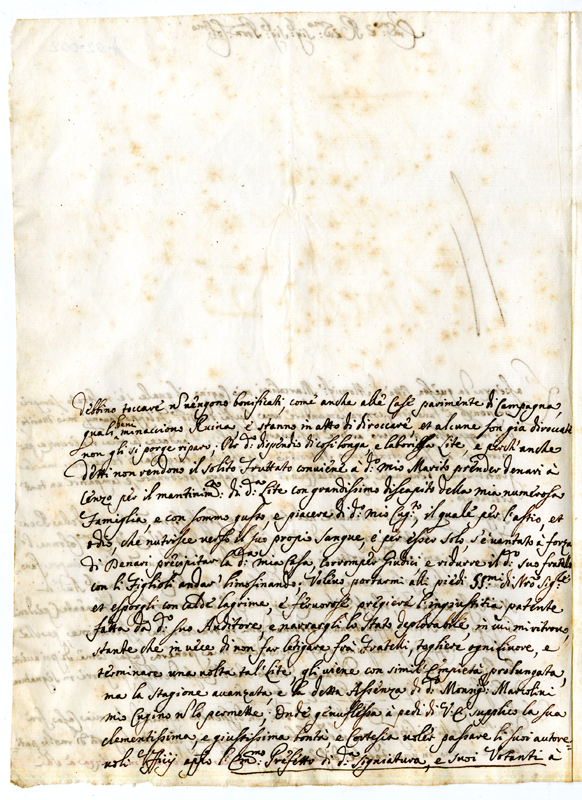 d'ettino toccare nõ uengono bonificati, come anche alle Case parimente di Campagna,
quali beni minacciono Ruina e stanno in atto di diroccare et alcune son già diroccate
non gli si porge riparo: Per d: dispendio di cosi longa e laboriosa Lite e perche anche
detti non rendono il solito fruttato conuiene à d: mio Marito prender denari à
Cenzo per il mantinim:to di d:a Lite con grandissimo discapito della mia numerosa
famiglia, e con sommo gusto, e piacere di d:o mio Cug:to, il quale per l'astio, et
odio, che nutrisce uerso il suo propio Sangue, e per esser solo s'è uantato à forza
di Denari precipitar la d:a mia Casa, corromper Giudici e ridurre il d:o suo fratello
con li figlioli andar limosinando: Voleuo portarmi alli piedi SS:mi di Nro Sig:re
et esporgli con calde lagrime, e feruorose preghiere l'ingiustitia patente
fatta da d:o suo Auditore, e narrargli lo stato deplorabile, in cui mi ritrouo,
stante che in uece di non far letigare frà fratelli, togliere ogni liuore, e
terminare una uolta tal lite, gli uiene con simil' empietà prolungata,
ma la stagione auanzata, e la detta assenza di d:o Monsig:r Martolini
mio Cugino nõ lo permette: Onde genuflessa à piedi di V.E. supplico la sua
clementissima, e giustissima bontà, e cortesia uolér passare li suoi autore-
uoli officij app:o l'Em:mo Prefetto di d:a Signiatura, e suoi Votanti à